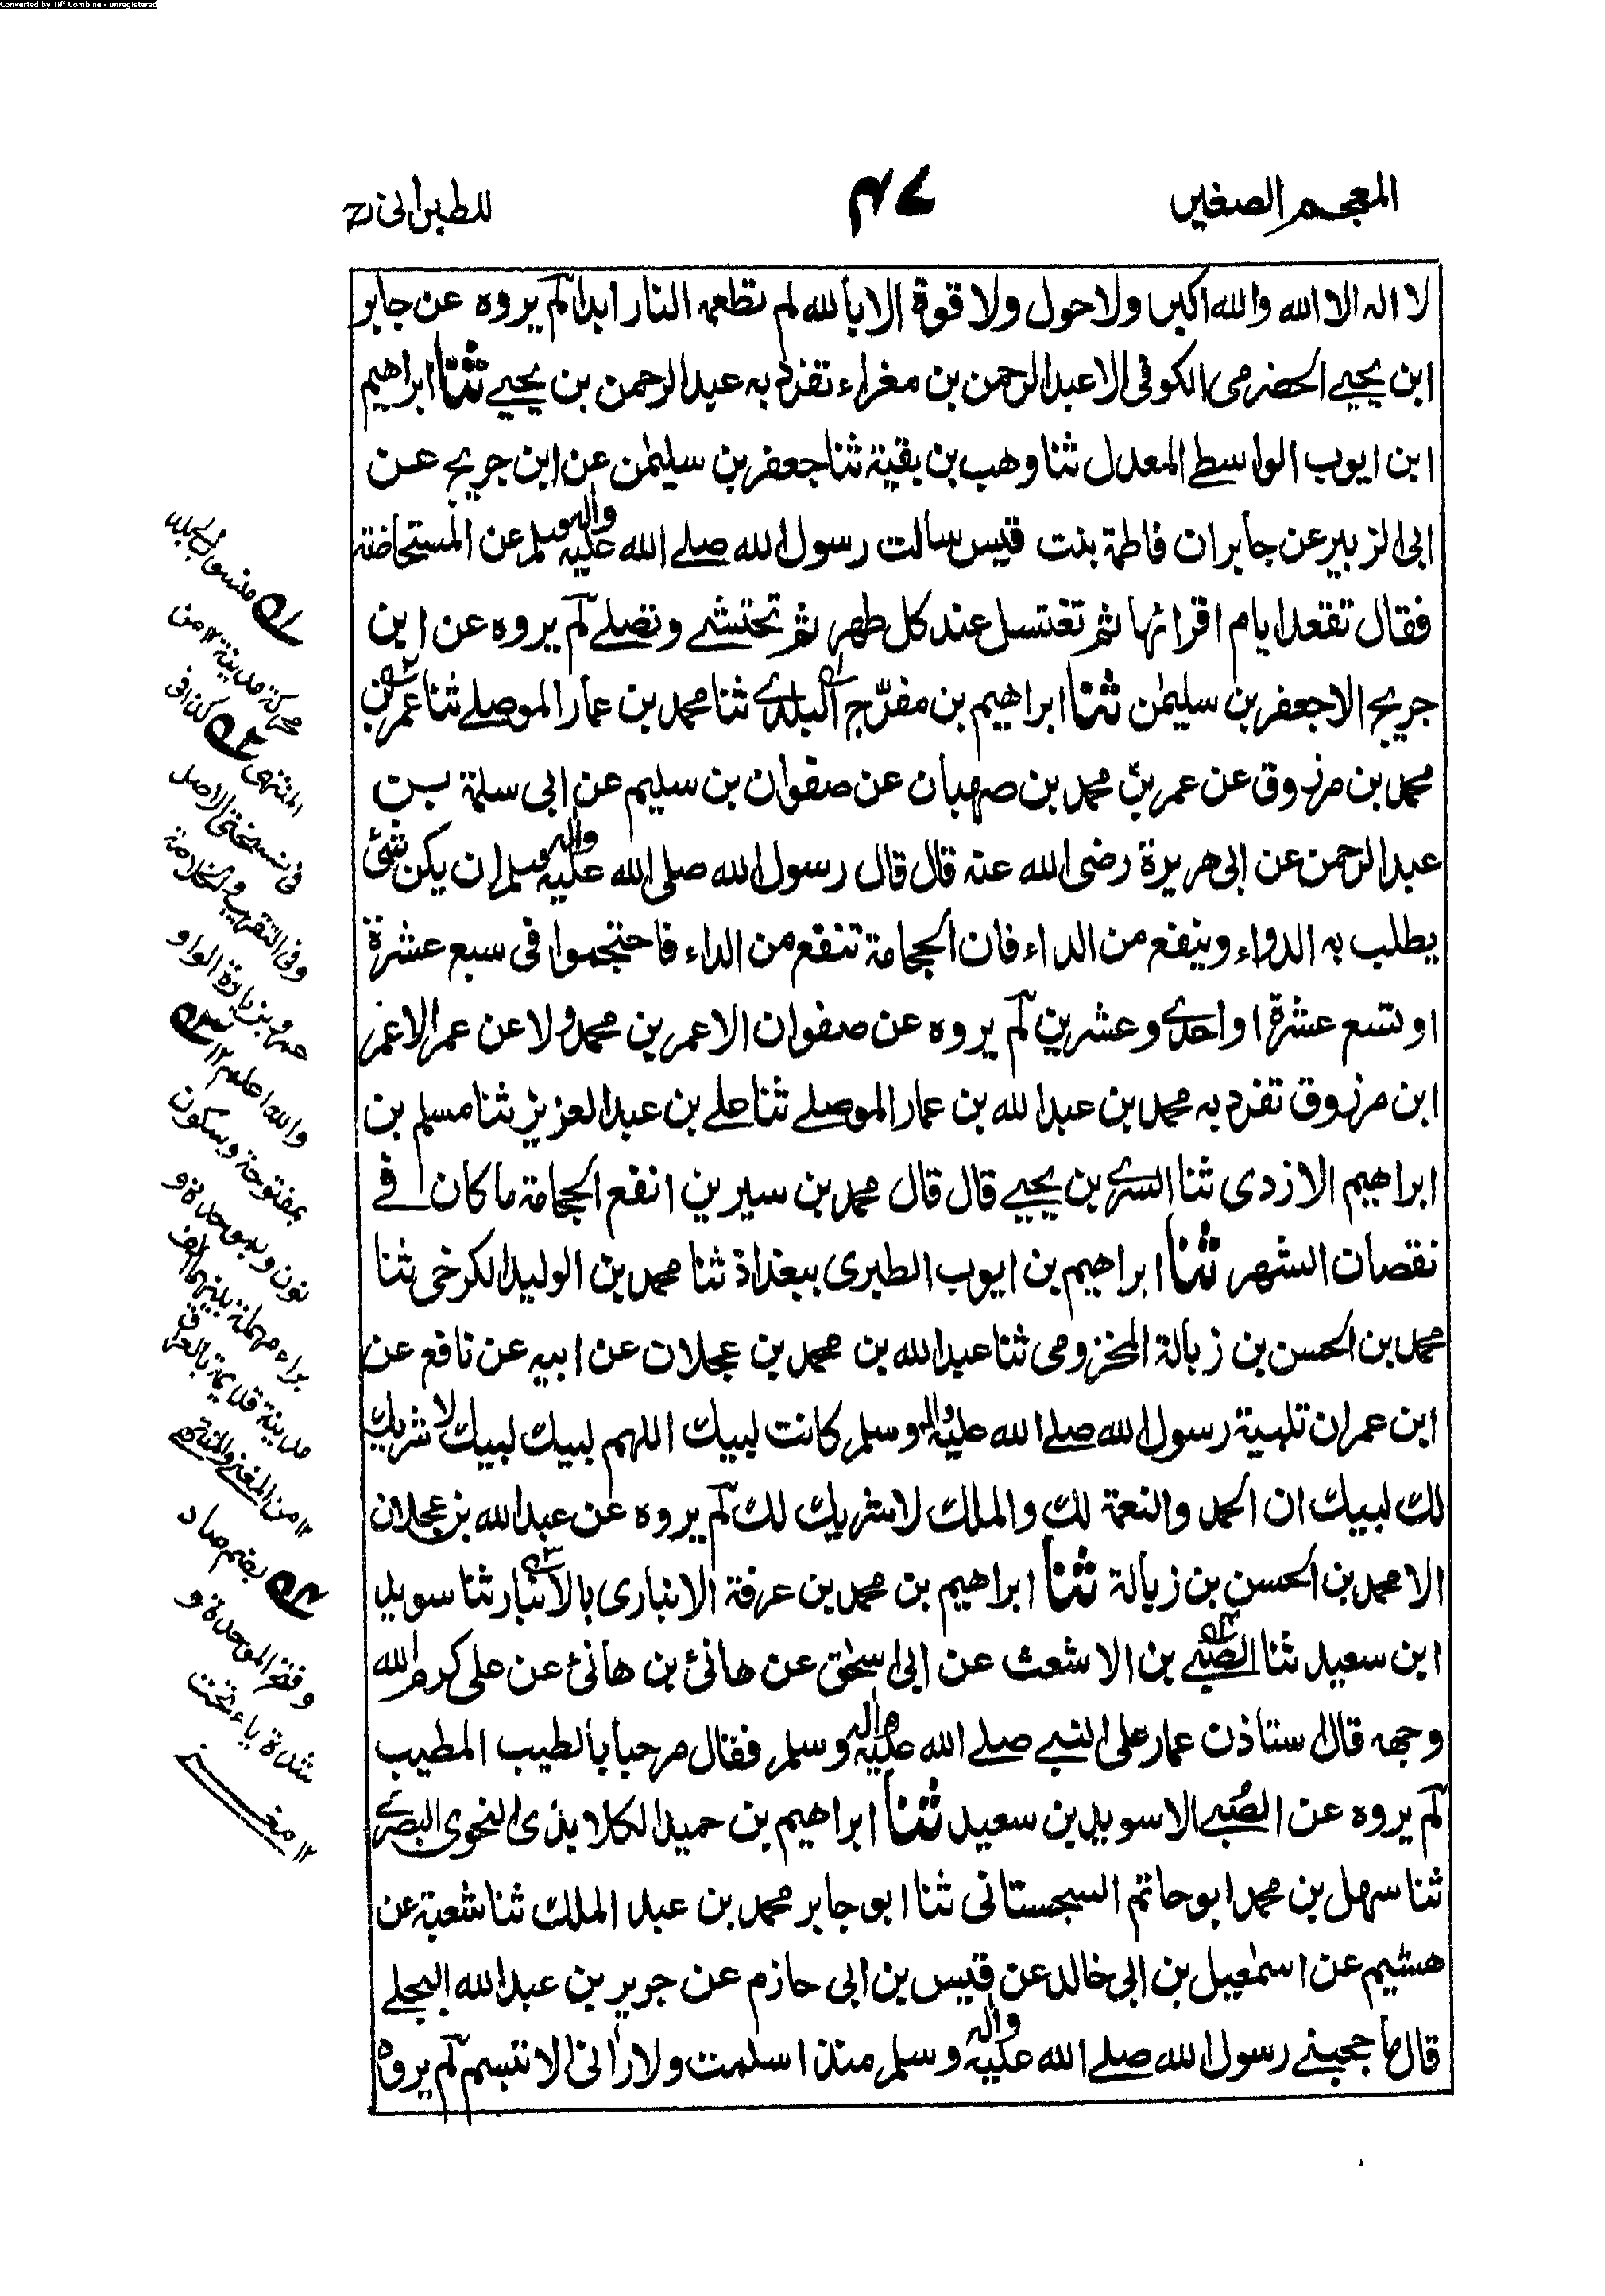 Converted by Tiff Combine - unregistered
المعجم الصغير
٤٧
للطبراني
لا اله الا الله والله اكبر ولا حول ولا قوة الا بالله لم تطعمه النار ابدا لم يروه عن جابر
ابن يحيى الحضرمي الكوفي الا عبد الرحمن بن مغراء تفرد به عبد الرحمن بن يحيى ثنا ابراهيم
ابن ايوب الواسطي المعدل ثنا وهب بن بقية ثنا جعفر بن سليمٰن عن ابن جريج عن
ابي الزبير عن جابر ان فاطمة بنت قيس سالت رسول الله صلى الله عليه واله وسلم عن المستحاضة
فقال تقعد ايام اقرائها ثم تغتسل عند كل طهر ثم تحتشي وتصلي لم يروه عن ابن
جريج الا جعفر بن سليمٰن ثنا ابراهيم بن مفرّج البلدي ثنا محمد بن عمار الموصلي ثنا عمر بن
محمد بن مرزوق عن عمر بن محمد بن صهبان عن صفوان بن سليم عن ابي سلمة بن
عبد الرحمن عن ابي هريرة رضى الله عنه قال قال رسول الله صلى الله عليه واله وسلم ان يكن شئ
يطلب به الدواء وينفع من الداء فان الحجامة تنفع من الداء فاحتجموا في سبع عشرة
او تسع عشرة او احدى وعشرين لم يروه عن صفوان الا عمر بن محمد ولا عن عمر الا عمر
ابن مرزوق تفرد به محمد بن عبد الله بن عمار الموصلي ثنا علي بن عبد العزيز ثنا مسلم بن
ابراهيم الازدى ثنا السري بن يحيى قال قال محمد بن سيرين انفع الحجامة ما كان في
نقصان الشهر ثنا ابراهيم بن ايوب الطبرى ببغداذ ثنا محمد بن الوليد الكرخي ثنا
محمد بن الحسن بن زبالة المخزومي ثنا عبد الله بن محمد بن عجلان عن ابيه عن نافع عن
ابن عمر ان تلبية رسول الله صلى الله عليه واله وسلم كانت لبيك اللهم لبيك لبيك لا شريك
لك لبيك ان الحمد والنعمة لك والملك لا شريك لك لم يروه عن عبد الله بن عجلان
الا محمد بن الحسن بن زبالة ثنا ابراهيم بن محمد بن عرفة الانبارى بالانبار ثنا سويد
ابن سعيد ثنا الصُّبَي بن الاشعث عن ابي اسحٰق عن هانئ بن هانئ عن على كرم الله
وجهه قال استاذن عمار على النبي صلى الله عليه واله وسلم فقال مرحبا بالطيب المطيب
لم يروه عن الصُّبَي الا سويد بن سعيد ثنا ابراهيم بن حميد الكلابذى النحوى البصري
ثنا سهل بن محمد ابو حاتم السجستاني ثنا ابو جابر محمد بن عبد الملك ثنا شعبة عن
هشيم عن اسمٰعيل بن ابي خالد عن قيس بن ابي حازم عن جرير بن عبد الله البجلي
قال ما حجبني رسول الله صلى الله عليه واله وسلم منذ اسلمت ولا رأني الا تبسم لم يروه
له١ منسوب لبلد
محركة مدينة ١٢ من
المنتهى له٢ كذا في
في نسختي الاصل
وفي التقريب والخلاصة
عمرو بزيادة الواو
والله اعلم ١٢ له٣
بمفتوحة وسكون
نون وبموحدة و
براء مهملة بينهما الف
مدينة قديمة بالعراق
١٢ من المغني والمنتهى
له٤ بضم صاد
وفتح الموحدة و
شدة ياء تحت
١٢ مغني